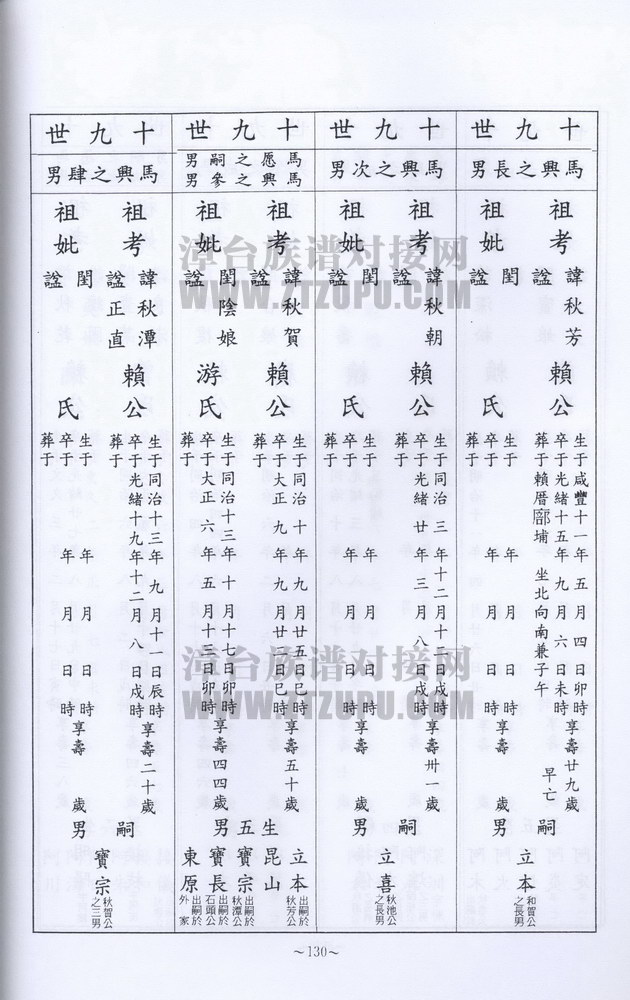 十九世
馬興之長男
祖考
諱秋芳
諡
賴公
生于咸豐十一年五月四日卯時享壽廿九歲
卒于光緒十五年九月六日未時
早亡
葬于賴厝廍埔
坐北向南兼子午
祖妣
閨
諡
氏
生于 年 月 日 時享壽 歲
卒于 年 月 日 時
葬于
嗣男
立本
和賀公之長男
十九世
馬興之次男
祖考
諱秋朝
諡
賴公
生于同治三年十二月十二日戌時享壽卅一歲
卒于光緒廿年三月八日戌時
葬于
祖妣
閨
諡
氏
生于 年 月 日 時享壽 歲
卒于 年 月 日 時
葬于
嗣男
立喜
秋池公之長男
十九世
馬愿之嗣男
馬興之參男
祖考
諱秋賀
諡
賴公
生于同治十年九月廿五日巳時享壽五十歲
卒于大正九年九月廿日巳時
葬于
祖妣
閨陰娘
諡
游氏
生于同治十三年十月十七日卯時享壽四四歲
卒于大正六年五月十三日卯時
葬于
生五男
立本
出嗣於秋芳公
昆山
寶宗
出嗣於秋潭公
寶長
出嗣於石頭公
東原
出嗣於外家
十九世
馬興之肆男
祖考
諱秋潭
諡正直
賴公
生于同治十三年九月十一日辰時享壽二十歲
卒于光緒十九年十二月八日戌時
葬于
祖妣
閨
諡
氏
生于 年 月 日 時享壽 歲
卒于 年 月 日 時
葬于
嗣男
寶宗
秋賀公之三男
漳台族谱对接网
WWW.ZTZUPU.COM
漳台族谱对接网
WWW.ZTZUPU.COM
~130~